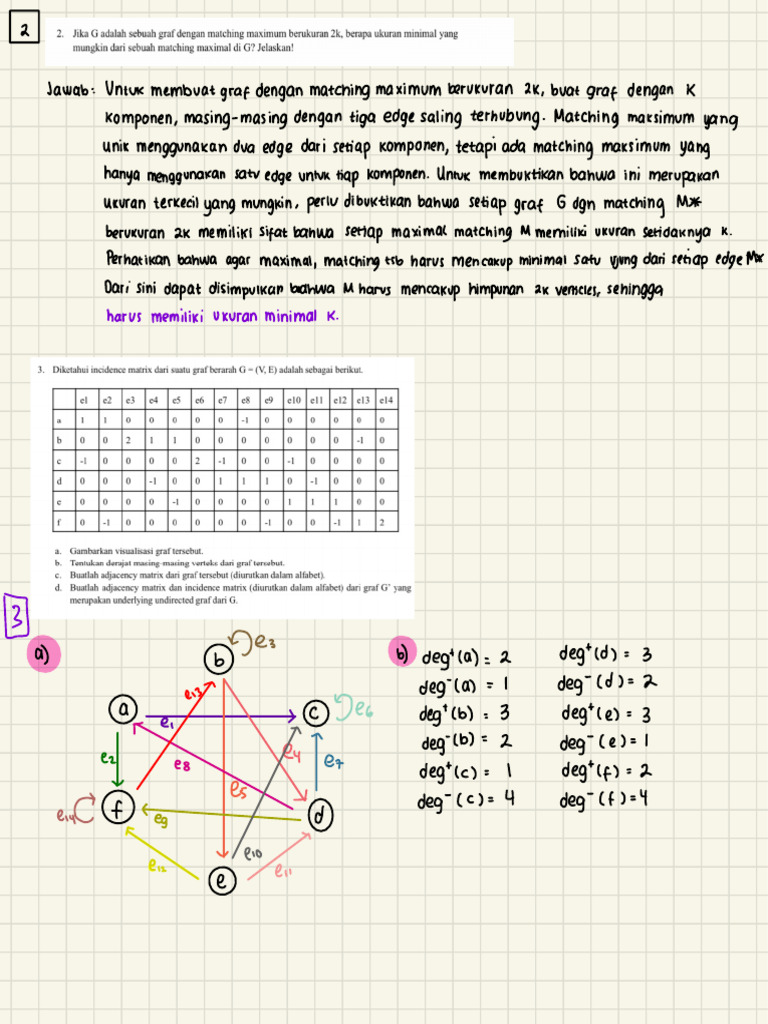 2
2. Jika G adalah sebuah graf dengan matching maximum berukuran 2k, berapa ukuran minimal yang
mungkin dari sebuah matching maximal di G? Jelaskan!
Jawab: Untuk membuat graf dengan matching maximum berukuran 2k, buat graf dengan K
komponen, masing-masing dengan tiga edge saling terhubung. Matching maksimum yang
unik menggunakan dua edge dari setiap komponen, tetapi ada matching maksimum yang
hanya menggunakan satu edge untuk tiap komponen. Untuk membuktikan bahwa ini merupakan
ukuran terkecil yang mungkin, perlu dibuktikan bahwa setiap graf G dgn matching M*
berukuran 2k memiliki sifat bahwa setiap maximal matching M memiliki ukuran setidaknya k.
Perhatikan bahwa agar maximal, matching tsb harus mencakup minimal satu ujung dari setiap edge M*
Dari sini dapat disimpulkan bahwa M harus mencakup himpunan 2k verticies, sehingga
harus memiliki ukuran minimal k.
3. Diketahui incidence matrix dari suatu graf berarah G = (V, E) adalah sebagai berikut.
e1 e2 e3 e4 e5 e6 e7 e8 e9 e10 e11 e12 e13 e14
a 1 1 0 0 0 0 0 -1 0 0 0 0 0 0
b 0 0 2 1 1 0 0 0 0 0 0 0 -1 0
c -1 0 0 0 0 2 -1 0 0 -1 0 0 0 0
d 0 0 0 -1 0 0 1 1 1 0 -1 0 0 0
e 0 0 0 0 -1 0 0 0 0 1 1 1 0 0
f 0 -1 0 0 0 0 0 0 -1 0 0 -1 1 2
a. Gambarkan visualisasi graf tersebut.
b. Tentukan derajat masing-masing verteks dari graf tersebut.
c. Buatlah adjacency matrix dari graf tersebut (diurutkan dalam alfabet).
d. Buatlah adjacency matrix dan incidence matrix (diurutkan dalam alfabet) dari graf G' yang
merupakan underlying undirected graf dari G.
3
a)
b
e3
e13
a
e1
c
e6
e2
e8
e4
e7
e14
f
e9
e5
d
e12
e10
e11
e
b)
deg⁺(a) = 2 deg⁺(d) = 3
deg⁻(a) = 1 deg⁻(d) = 2
deg⁺(b) = 3 deg⁺(e) = 3
deg⁻(b) = 2 deg⁻(e) = 1
deg⁺(c) = 1 deg⁺(f) = 2
deg⁻(c) = 4 deg⁻(f) = 4